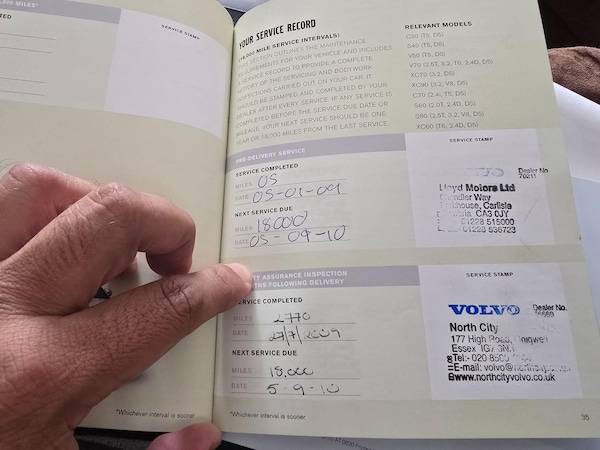 ,000 MILES*
TED
SERVICE STAMP
*Whichever interval is sooner
YOUR SERVICE RECORD
(18,000 MILE SERVICE INTERVALS)
SECTION OUTLINES THE MAINTENANCE
REQUIREMENTS FOR YOUR VEHICLE AND INCLUDES
A SERVICE RECORD TO PROVIDE A COMPLETE
HISTORY OF THE SERVICING AND BODYWORK
INSPECTIONS CARRIED OUT ON YOUR CAR. IT
SHOULD BE STAMPED AND COMPLETED BY YOUR
DEALER AFTER EVERY SERVICE. IF ANY SERVICE IS
COMPLETED BEFORE THE SERVICE DUE DATE OR
MILEAGE, YOUR NEXT SERVICE SHOULD BE ONE
YEAR OR 18,000 MILES FROM THE LAST SERVICE.
RELEVANT MODELS
C30 (T5, D5)
S40 (T5, D5)
V50 (T5, D5)
V70 (2.5T, 3.2, T6, 2.4D, D5)
XC70 (3.2, D5)
XC90 (3.2, V8, D5)
C70 (2.4i, T5, D5)
S60 (2.0T, 2.4D, D5)
S80 (2.5T, 3.2, V8, D5)
XC60 (T6, 2.4D, D5)
PRE-DELIVERY SERVICE
SERVICE COMPLETED
MILES 05
DATE 05-01-09
NEXT SERVICE DUE
MILES 18000
DATE 05-09-10
SERVICE STAMP
VOLVO Dealer No
70211
Lloyd Motors Ltd
Chandler Way
Parkhouse, Carlisle
CA3 0JY
01228 515000
01228 536723
TY ASSURANCE INSPECTION
THS FOLLOWING DELIVERY
SERVICE COMPLETED
MILES 2770
DATE 27/7/2009
NEXT SERVICE DUE
MILES 18,000
DATE 5-9-10
SERVICE STAMP
VOLVO Dealer No.
North City
177 High Road, Chigwell
Essex IG7
Tel:- 020
E-mail: volvo@
www.northcityvolvo.co.uk
*Whichever interval is sooner
35